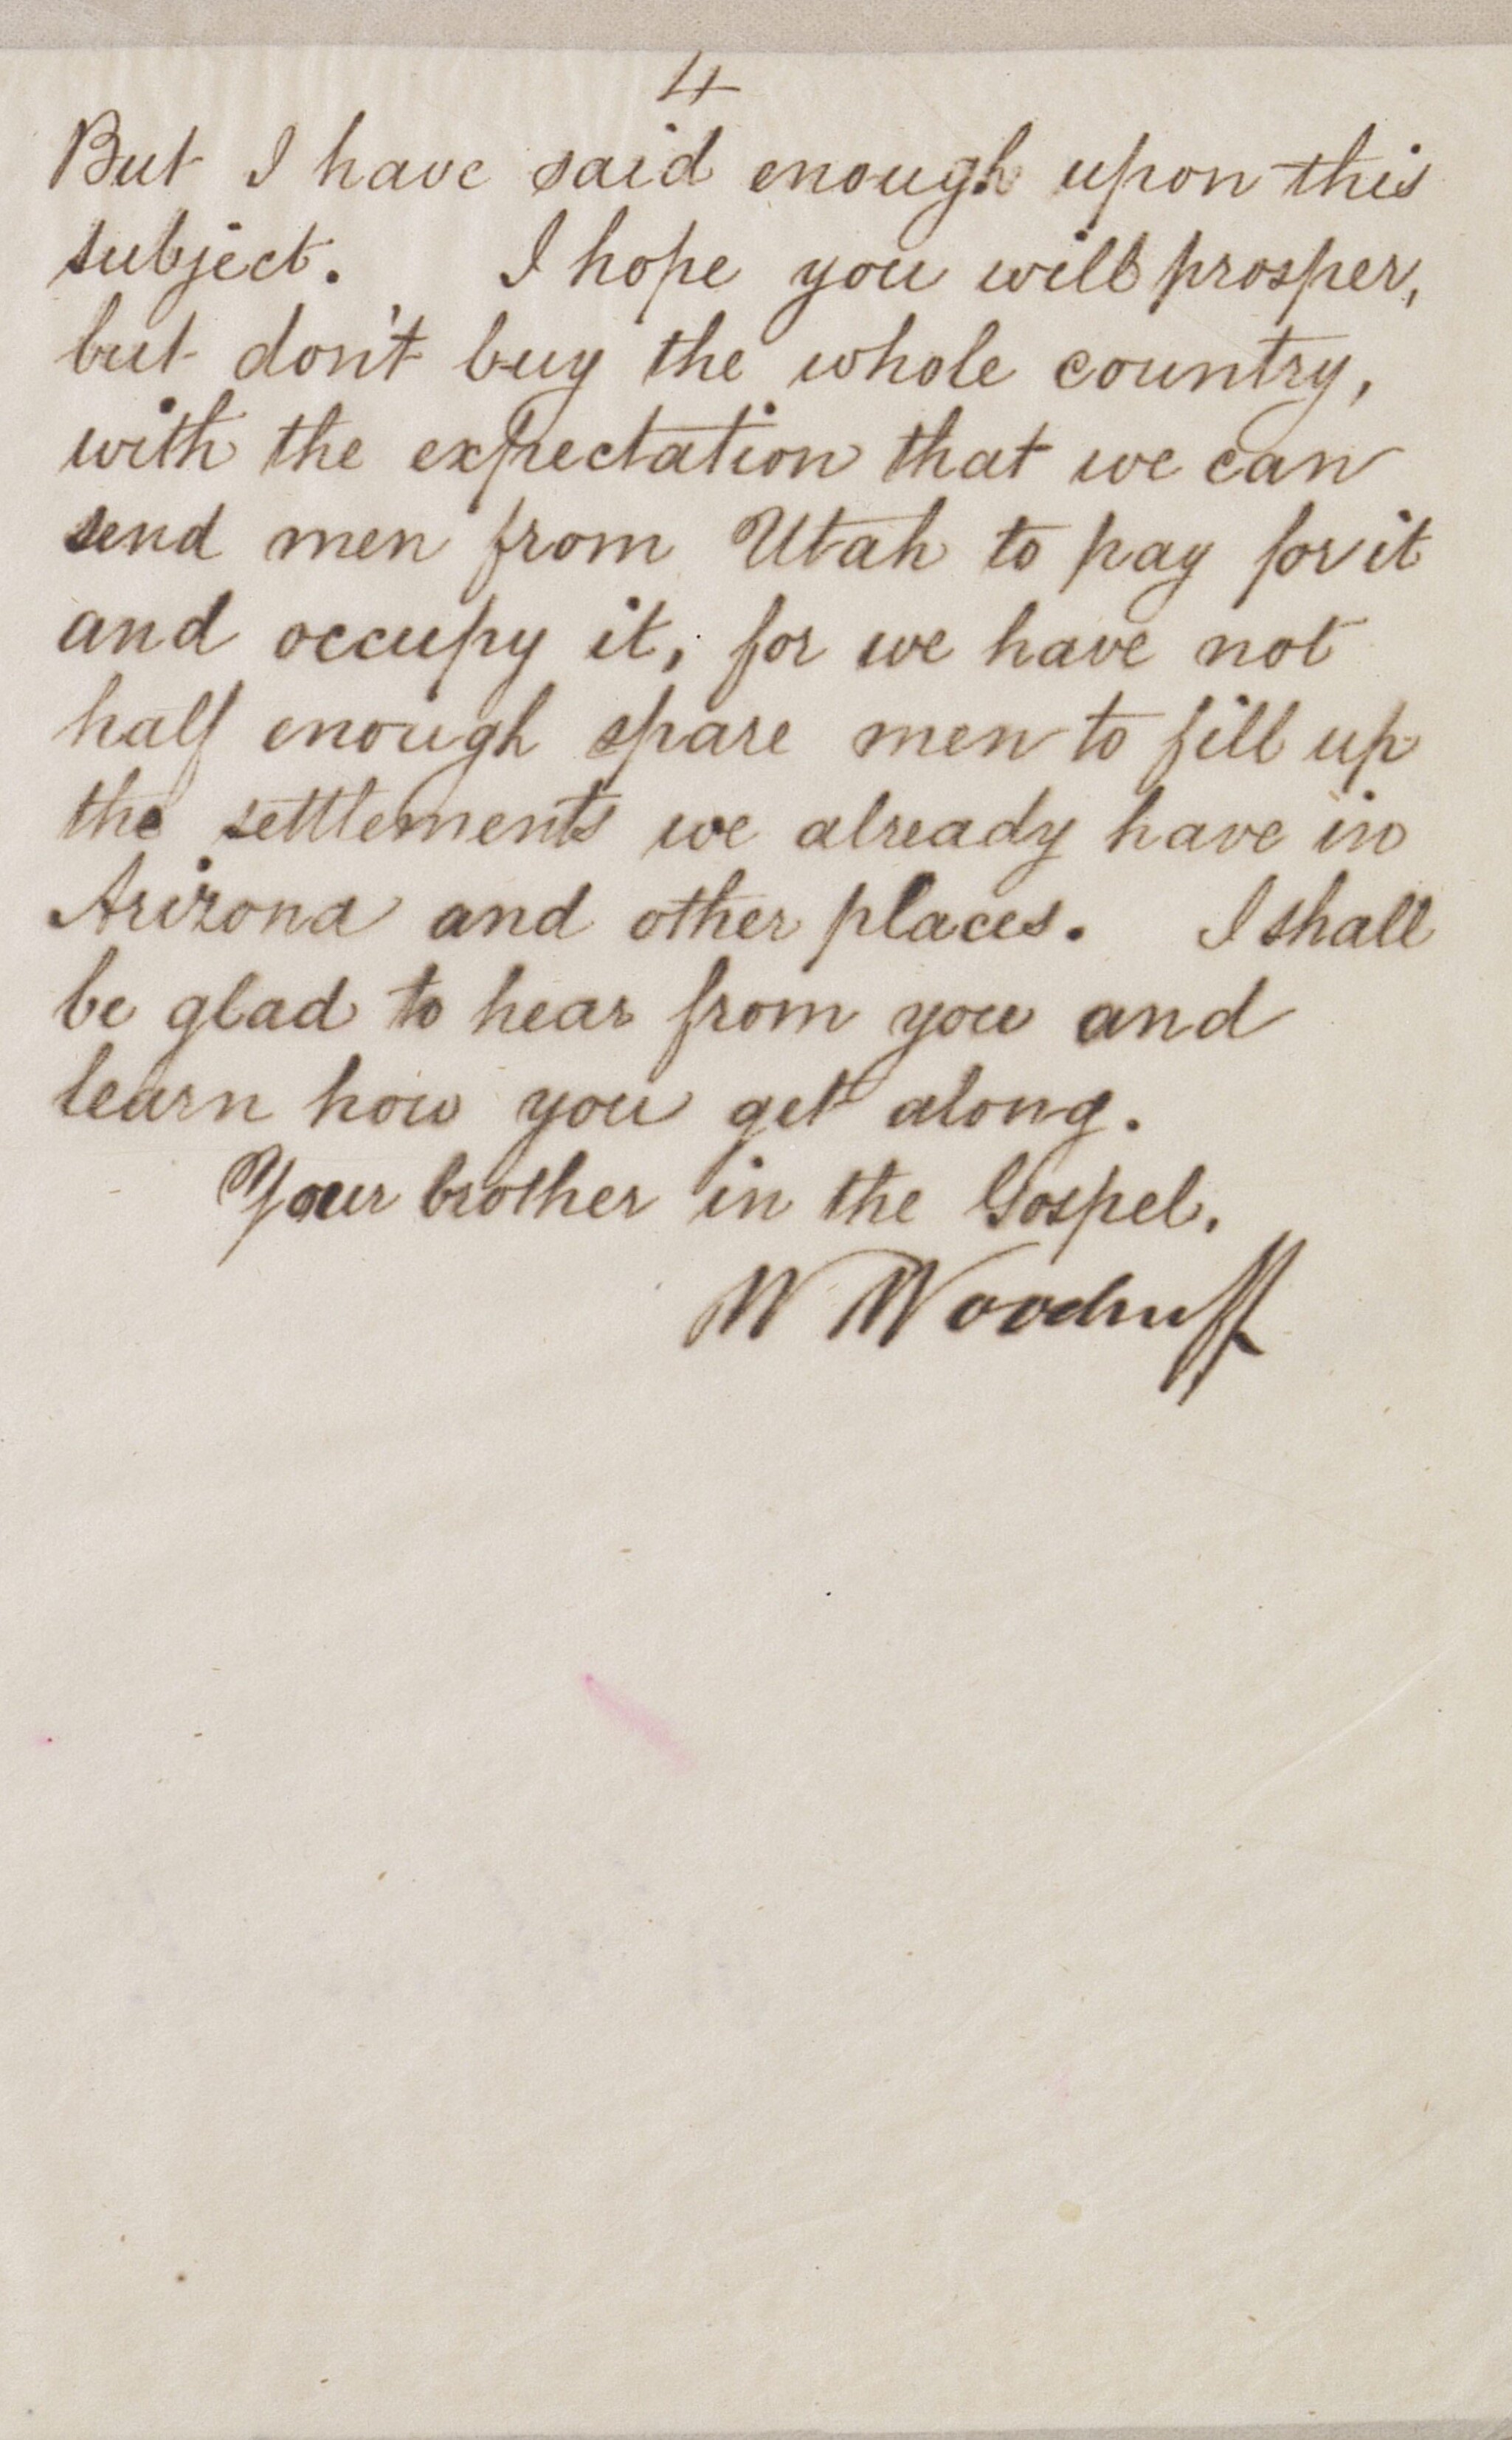 4
But I have said enough upon this
subject. I hope you will prosper,
but don't buy the whole country,
with the expectation that we can
send men from Utah to pay for it
and occupy it, for we have not
half enough spare men to fill up
the settlements we already have in
Arizona and other places. I shall
be glad to hear from you and
learn how you get along.
Your brother in the Gospel.
W Woodruff